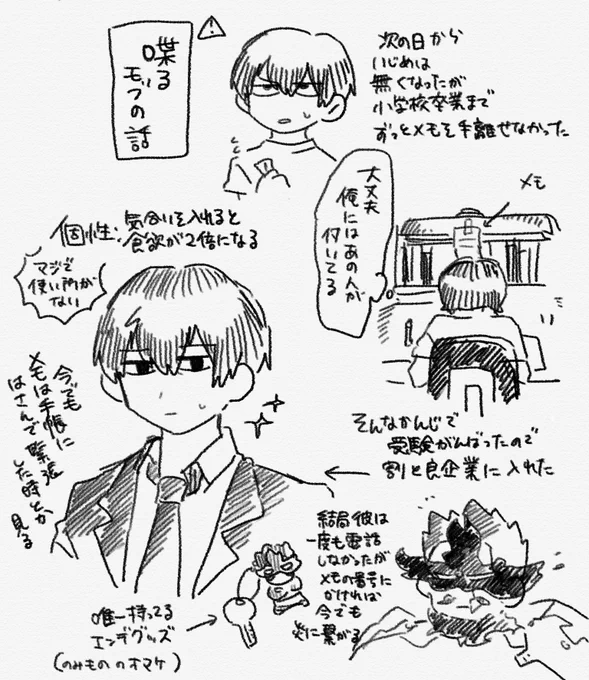 喋る
モブの話
次の日から
いじめは
無くなったが
小学校卒業まで
ずっとメモを手離せなかった
メモ
大丈夫
俺にはあの人が
付いてる
個性:気合いを入れると
食欲が2倍になる
マジで
使い所が
ない
今でも
メモは手帳に
はさんで緊張
した時とか
見る
そんなかんじで
受験がんばったので
割と良企業に入れた
結局彼は
一度も電話
しなかったが
メモの番号に
かければ
今でも
炎に繋がる
唯一持ってる
エンデグッズ
(のみもののオマケ)